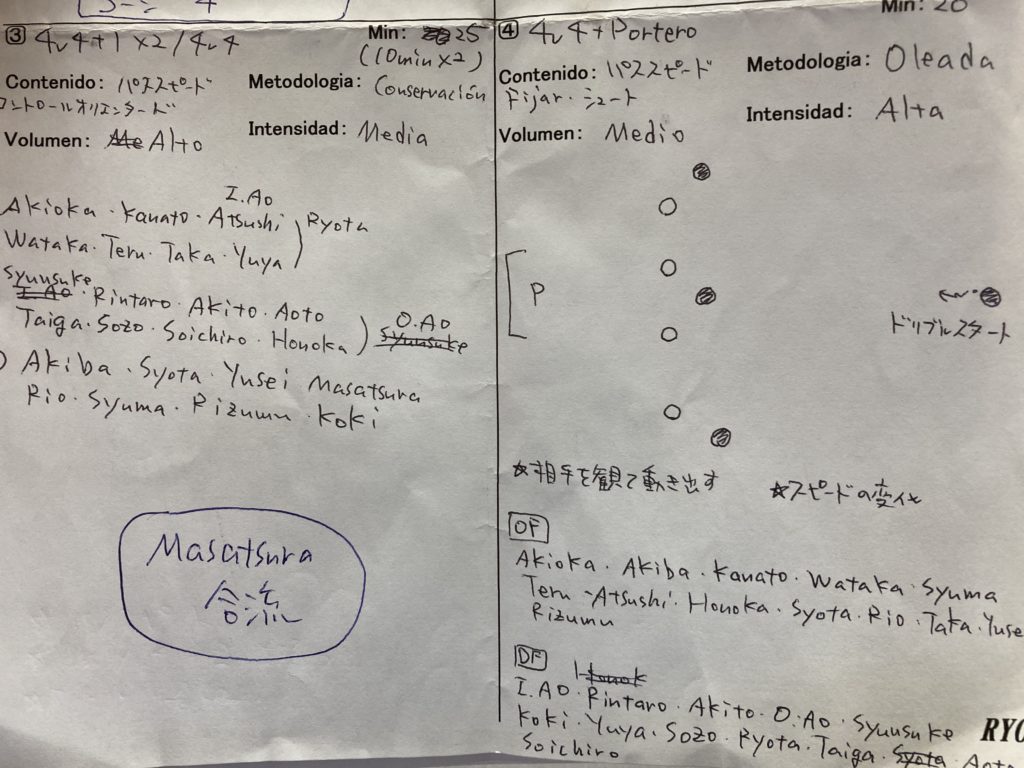 コーン 4
③ 4v4+1×2/4v4
Min: 25
(10min×2)
Contenido: パススピード
コントロールオリエンタード
Metodologia: Conservación
Volumen: Alto
Intensidad: Media
I.Ao
Akioka・Kanato・Atsushi
Wataka・Teru・Taka・Yuya
Ryota
Syuusuke
I.Ao・Rintaro・Akito・Aoto
Taiga・Sozo・Soichiro・Honoka
O.Ao
Syuusuke
Akiba・Syota・Yusei Masatsura
Rio・Syuma・Rizumu・Koki
Masatsura
合流
Min: 20
④ 4v4+Portero
Contenido: パススピード
Fijar・シュート
Metodologia: Oleada
Volumen: Medio
Intensidad: Alta
P
ドリブルスタート
☆相手を観て動き出す
☆スピードの変化
OF
Akioka・Akiba・Kanato・Wataka・Syuma
Teru・Atsushi・Honoka・Syota・Rio・Taka・Yuse
Rizumu
DF
Honok
I.Ao・Rintaro・Akito・O.Ao・Syuusuke
Koki・Yuya・Sozo・Ryota・Taiga・Syota・Aoto
Soichiro
RYO